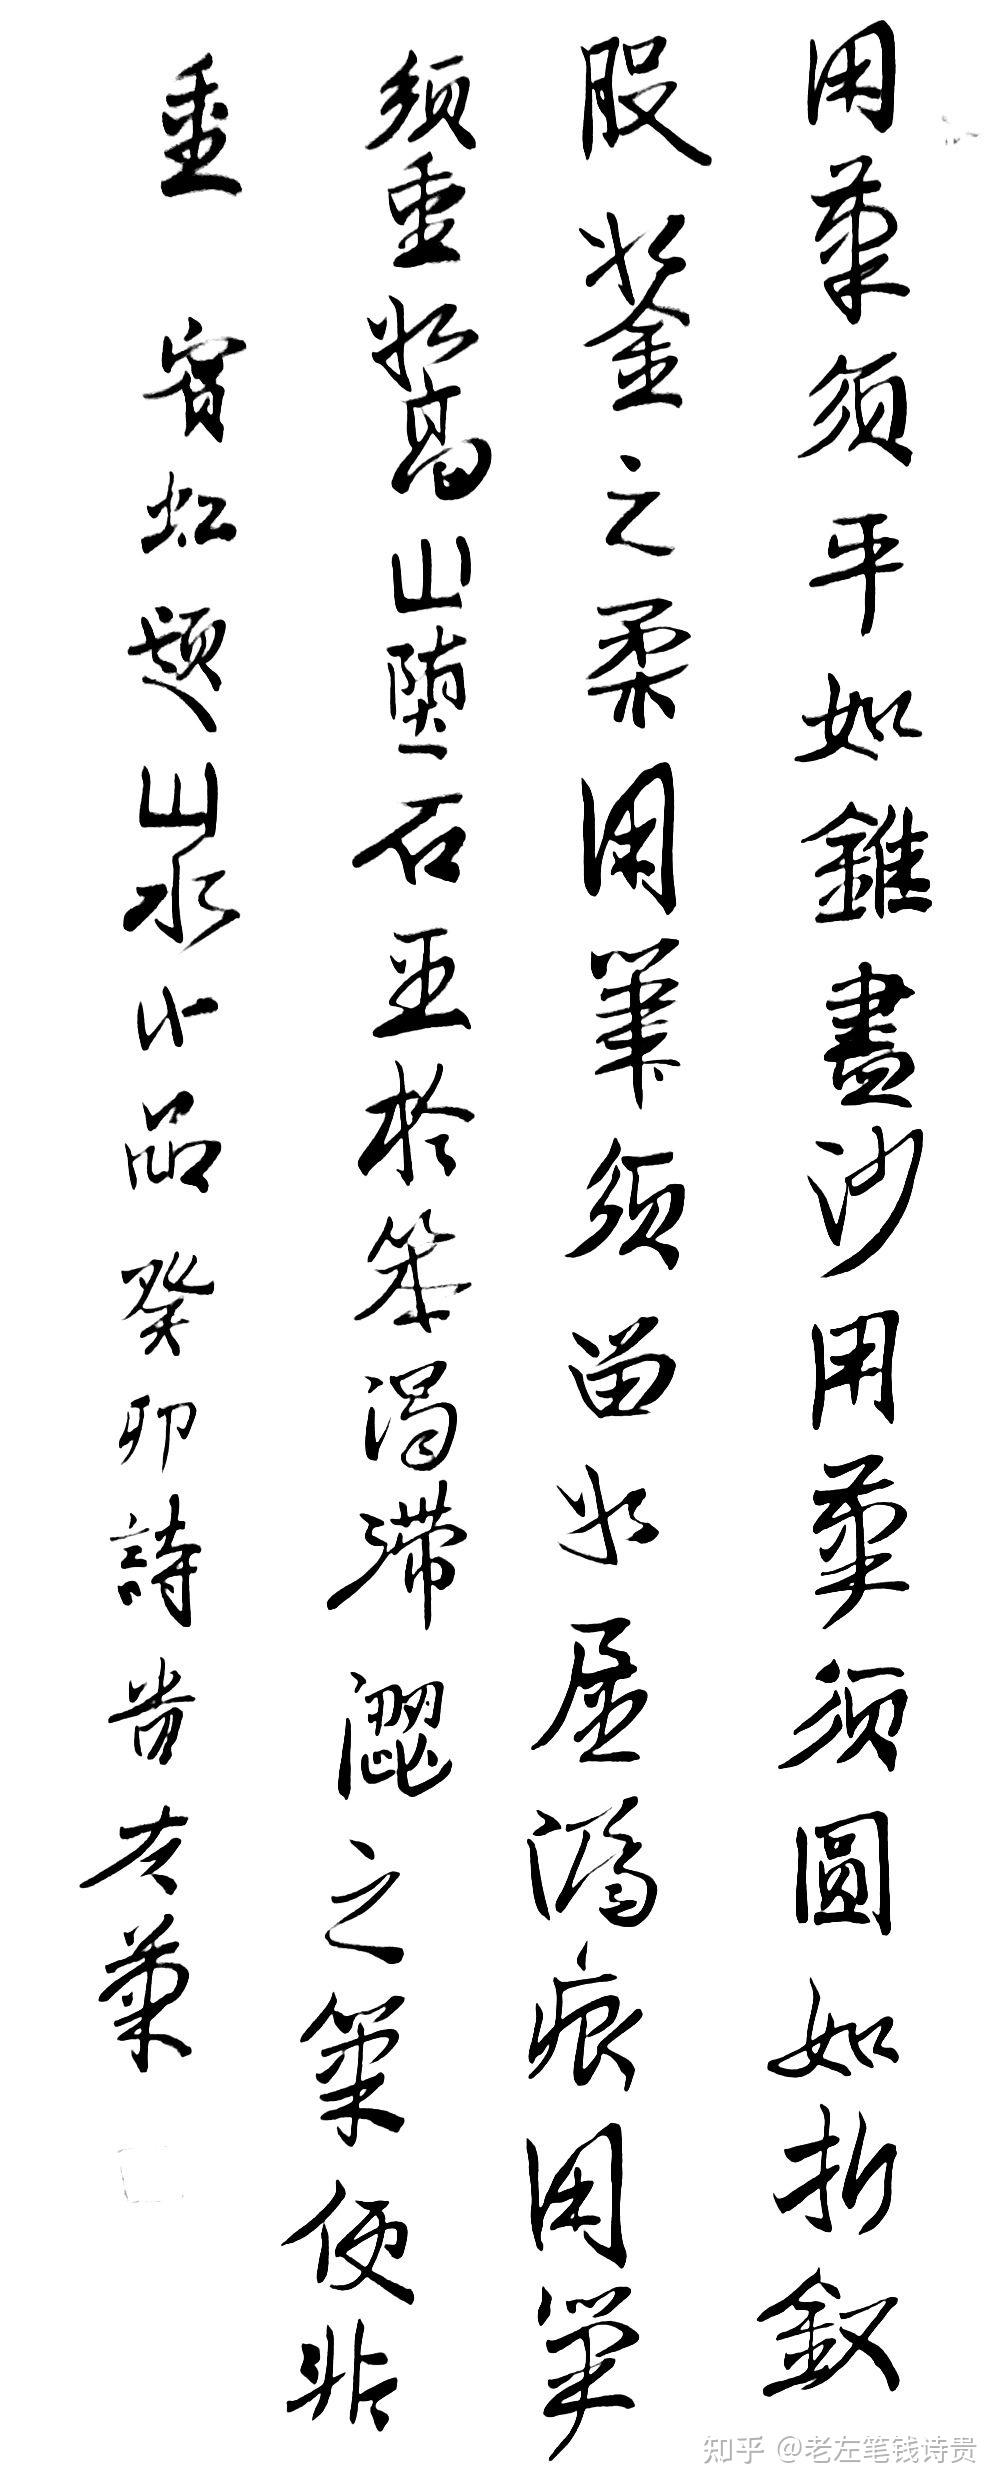 用筆須平如錐畫沙用筆須圓如折釵
股如金之柔用筆須留如屋漏痕用筆
須重如高山墮石至於笨渴滯澀之筆便非
重 賓虹題山水小品癸卯詩貴左筆
知乎 @老左笔钱诗贵